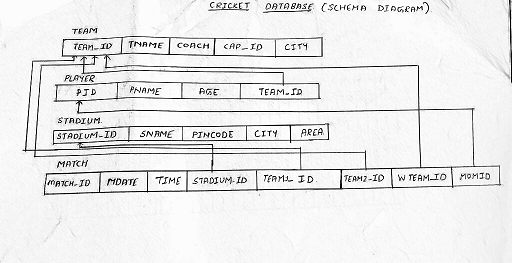 CRICKET DATABASE (SCHEMA DIAGRAM)
TEAM
TEAM_ID TNAME COACH CAP_ID CITY
PLAYER
PID PNAME AGE TEAM_ID
STADIUM
STADIUM_ID SNAME PINCODE CITY AREA
MATCH
MATCH_ID MDATE TIME STADIUM_ID TEAM1_ID TEAM2-ID WTEAM_ID MOMID